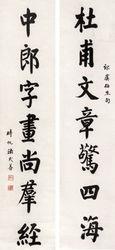 杜甫文章驚四海
中郎字畫尚羣經